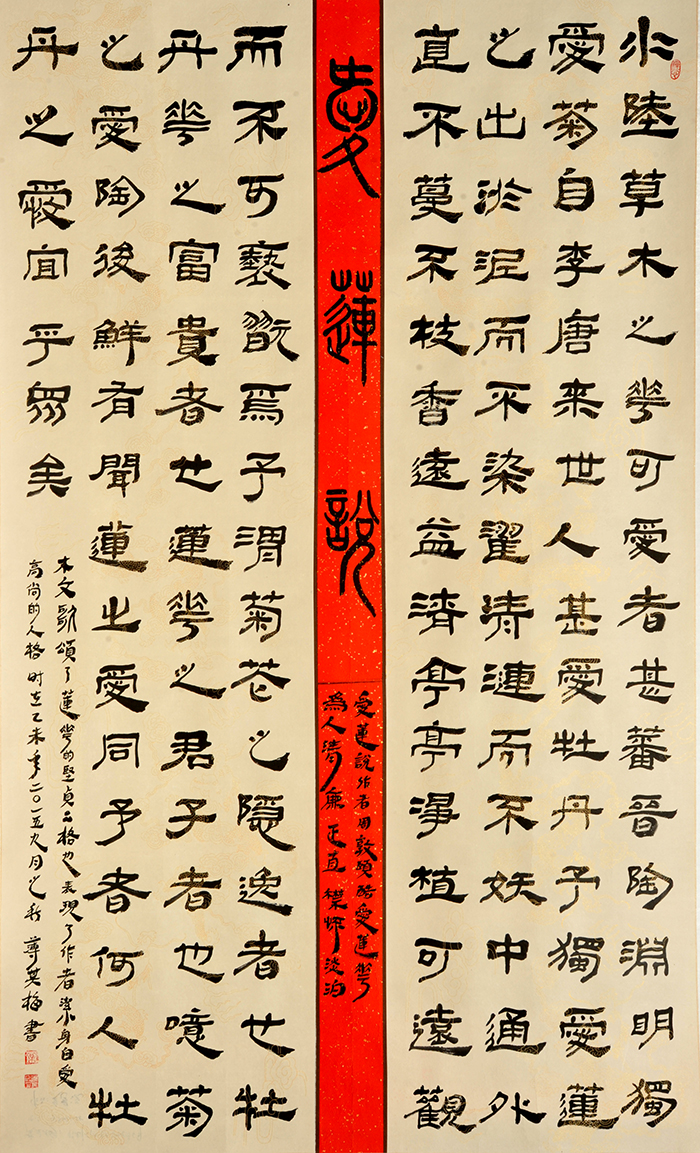 水陸草木之華可愛者甚蕃晉陶淵明獨
愛菊自李唐來世人甚愛牡丹予獨愛蓮
之出淤泥而不染濯清漣而不妖中通外
直不蔓不枝香遠益清亭亭淨植可遠觀
愛蓮說
愛蓮說作者周敦頤酷愛蓮華
為人清廉正直襟怀淡泊
而不可褻翫焉予謂菊花之隱逸者也牡
丹華之富貴者也蓮華之君子者也噫菊
之愛陶後鮮有聞蓮之愛同予者何人牡
丹之愛宜乎眾矣
本文歌頌了蓮華的堅貞品格也表現了作者潔身自愛
高尚的人格时在乙未年二〇一五九月之秋英梅書